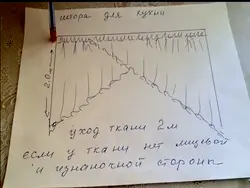 штора для кухни
2.0м
уход ткани 2м
если у ткани нет лицевой
и изнаночной стороны